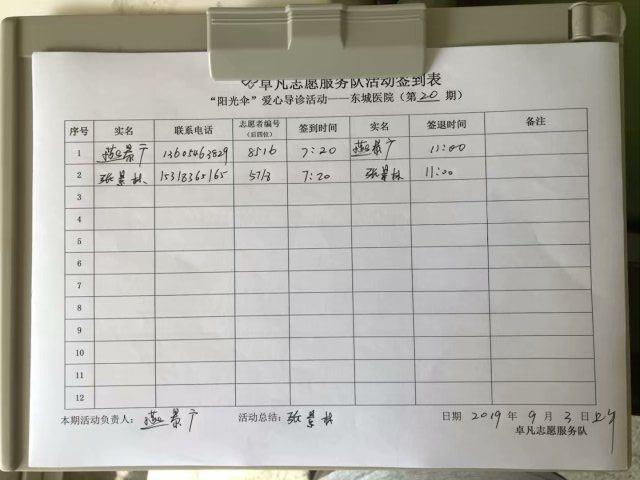 卓凡志愿服务队活动签到表
“阳光伞”爱心导诊活动——东城医院（第 20 期）
序号 实名 联系电话 志愿者编号（后四位） 签到时间 实名 签退时间 备注
1 燕景广 13605463829 8516 7:20 燕景广 11:00
2 张景林 15318365165 5713 7:20 张景林 11:00
3
4
5
6
7
8
9
10
11
12
本期活动负责人：燕景广 活动总结：张景林 日期 2019 年 9 月 3 日上午
卓凡志愿服务队